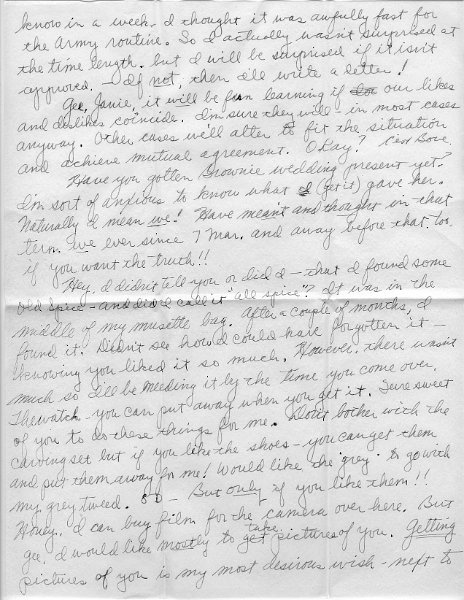 know in a week. I thought it was awfully fast for
the Army routine. So I actually wasn't surprised at
the time length. but I will be surprised if it isn't
approved. - If not, then I'll write a letter!
Gee, Janie, it will be fun learning if our likes
and dislikes coincide. I'm sure they will - in most cases
anyway. Other cases we'll alter to fit the situation
and achieve mutual agreement. Okay?
Have you gotten Brownie wedding present yet?
I'm sort of anxious to know what I (get it) gave her.
Naturally I mean we! Have meant and thought in that
term we ever since 7 Mar. and away before that, too
if you want the truth!!
Hey, I didn't tell you or did I - that I found some
Old Spice - and did I call it "all spice"? It was in the
middle of my musette bag. After a couple of months, I
found it. Didn't see how I could have forgotten it -
knowing you liked it so much. However, there wasn't
much so I'll be needing it by the time you come over.
The watch you can put away when you get it. Sure sweet
of you to do these things for me. Don't bother with the
carving set but if you like the shoes - you can get them
and put them away for me! Would like the grey to go with
my grey tweed. - But only if you like them!!
Honey, I can buy film for the camera over here. But
gee, I would like mostly to get take pictures of you. Getting
pictures of you is my most desirous wish - next to